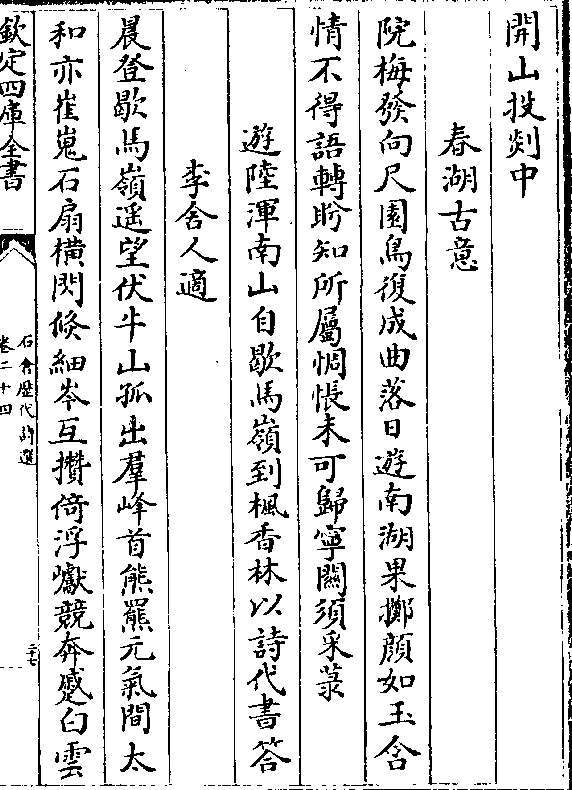 開山投剡中
春湖古意
院梅發向尺園鳥復成曲落日遊南湖果擲顔如玉含
情不得語轉盻知所屬惆悵未可歸寧闗須采菉
遊陸渾南山自歇馬嶺到楓香林以詩代書答
李舍人適
晨登歇馬嶺遥望伏牛山孤出羣峰首熊羆元氣間太
和亦崔嵬石扇横閃倏細岑互攢倚浮巘競奔蹙白雲
欽定四庫全書
石倉歴代詩選
卷二十四
三七